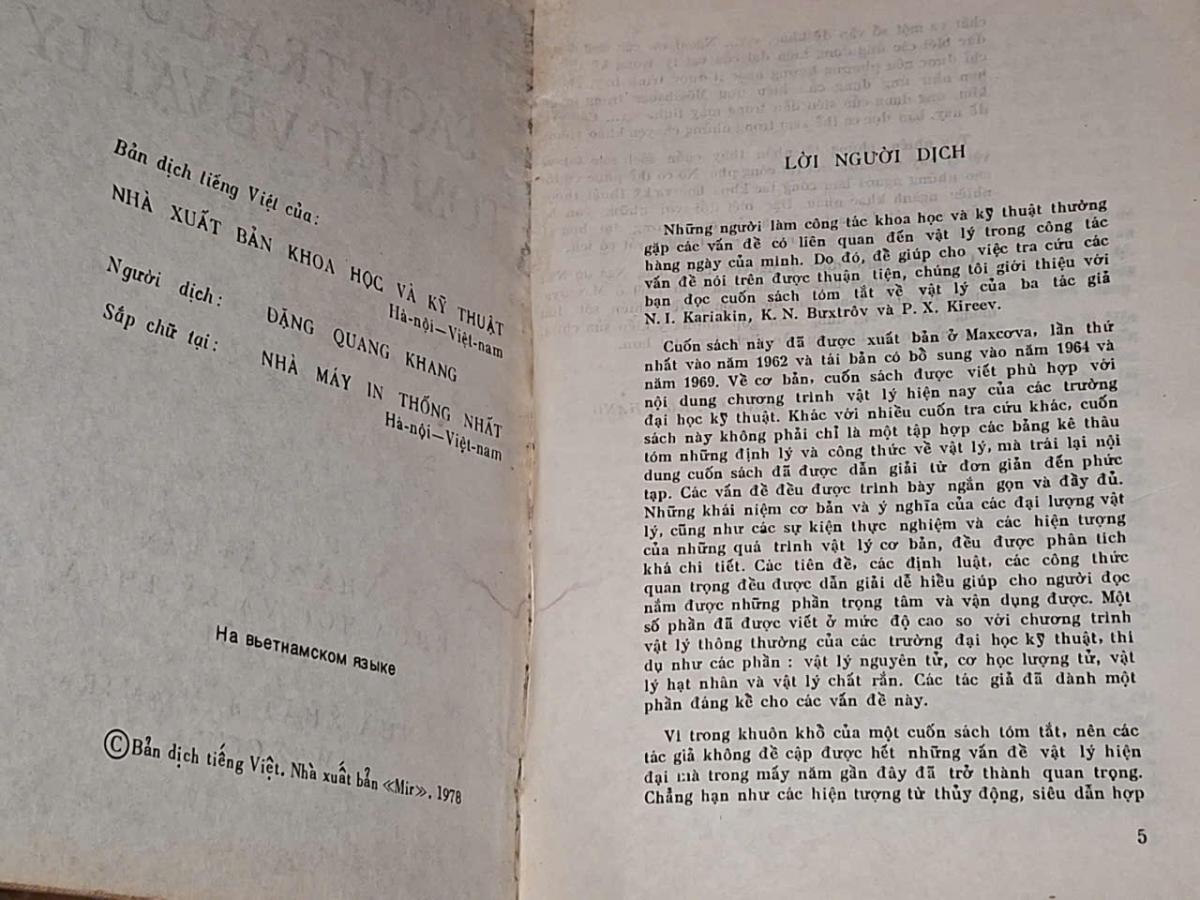 Bản dịch tiếng Việt của:
NHÀ XUẤT BẢN KHOA HỌC VÀ KỸ THUẬT
Hà-nội—Việt-nam
Người dịch: ĐẶNG QUANG KHANG
Sắp chữ tại: NHÀ MÁY IN THỐNG NHẤT
Hà-nội—Việt-nam
На вьетнамском языке
© Bản dịch tiếng Việt. Nhà xuất bản «Mir». 1978
LỜI NGƯỜI DỊCH
Những người làm công tác khoa học và kỹ thuật thường
gặp các vấn đề có liên quan đến vật lý trong công tác
hàng ngày của mình. Do đó, để giúp cho việc tra cứu các
vấn đề nói trên được thuận tiện, chúng tôi giới thiệu với
bạn đọc cuốn sách tóm tắt về vật lý của ba tác giả
N. I. Kariakin, K. N. Bưxtrôv và P. X. Kireev.
Cuốn sách này đã được xuất bản ở Maxcơva, lần thứ
nhất vào năm 1962 và tái bản có bổ sung vào năm 1964 và
năm 1969. Về cơ bản, cuốn sách được viết phù hợp với
nội dung chương trình vật lý hiện nay của các trường
đại học kỹ thuật. Khác với nhiều cuốn tra cứu khác, cuốn
sách này không phải chỉ là một tập hợp các bảng kê thâu
tóm những định lý và công thức về vật lý, mà trái lại nội
dung cuốn sách đã được dẫn giải từ đơn giản đến phức
tạp. Các vấn đề đều được trình bày ngắn gọn và đầy đủ.
Những khái niệm cơ bản và ý nghĩa của các đại lượng vật
lý, cũng như các sự kiện thực nghiệm và các hiện tượng
của những quá trình vật lý cơ bản, đều được phân tích
khá chi tiết. Các tiên đề, các định luật, các công thức
quan trọng đều được dẫn giải dễ hiểu giúp cho người đọc
nắm được những phần trọng tâm và vận dụng được. Một
số phần đã được viết ở mức độ cao so với chương trình
vật lý thông thường của các trường đại học kỹ thuật, thí
dụ như các phần : vật lý nguyên tử, cơ học lượng tử, vật
lý hạt nhân và vật lý chất rắn. Các tác giả đã dành một
phần đáng kể cho các vấn đề này.
Vì trong khuôn khổ của một cuốn sách tóm tắt, nên các
tác giả không đề cập được hết những vấn đề vật lý hiện
đại mà trong mấy năm gần đây đã trở thành quan trọng.
Chẳng hạn như các hiện tượng từ thủy động, siêu dẫn hợp
5